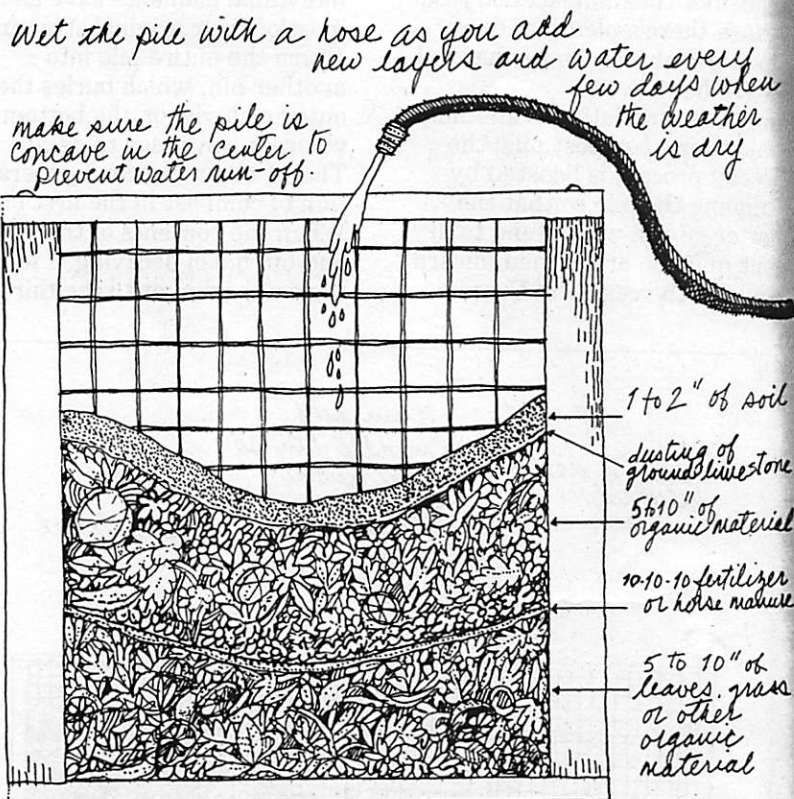 Wet the pile with a hose as you add
new layers and water every
few days when
the weather
is dry
make sure the pile is
concave in the center to
prevent water run-off.
1 to 2" of soil
dusting of
ground limestone
5 to 10" of
organic material
10-10-10 fertilizer
or horse manure
5 to 10" of
leaves, grass
or other
organic
material